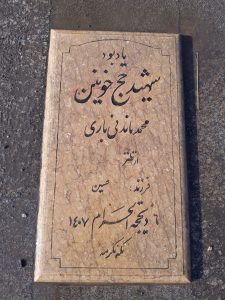 یادبود
شهید حج خونین
محمد ماندنی یاری
فرزند: حسین
ذیحجه الحرام ۱۴۰۷
مکه مکرمه